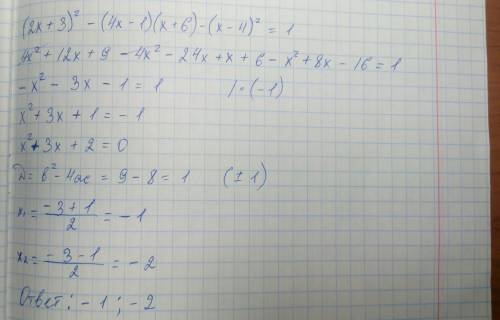 (2x+3)² - (4x-1)(x+6) - (x-4)² = 1
4x² + 12x + 9 - 4x² - 24x + x + 6 - x² + 8x - 16 = 1
-x² - 3x - 1 = 1 /·(-1)
x² + 3x + 1 = -1
x² + 3x + 2 = 0
D = b² - 4ac = 9 - 8 = 1 (±1)
x₁ = (-3+1)/2 = -1
x₂ = (-3-1)/2 = -2
Ответ: -1; -2